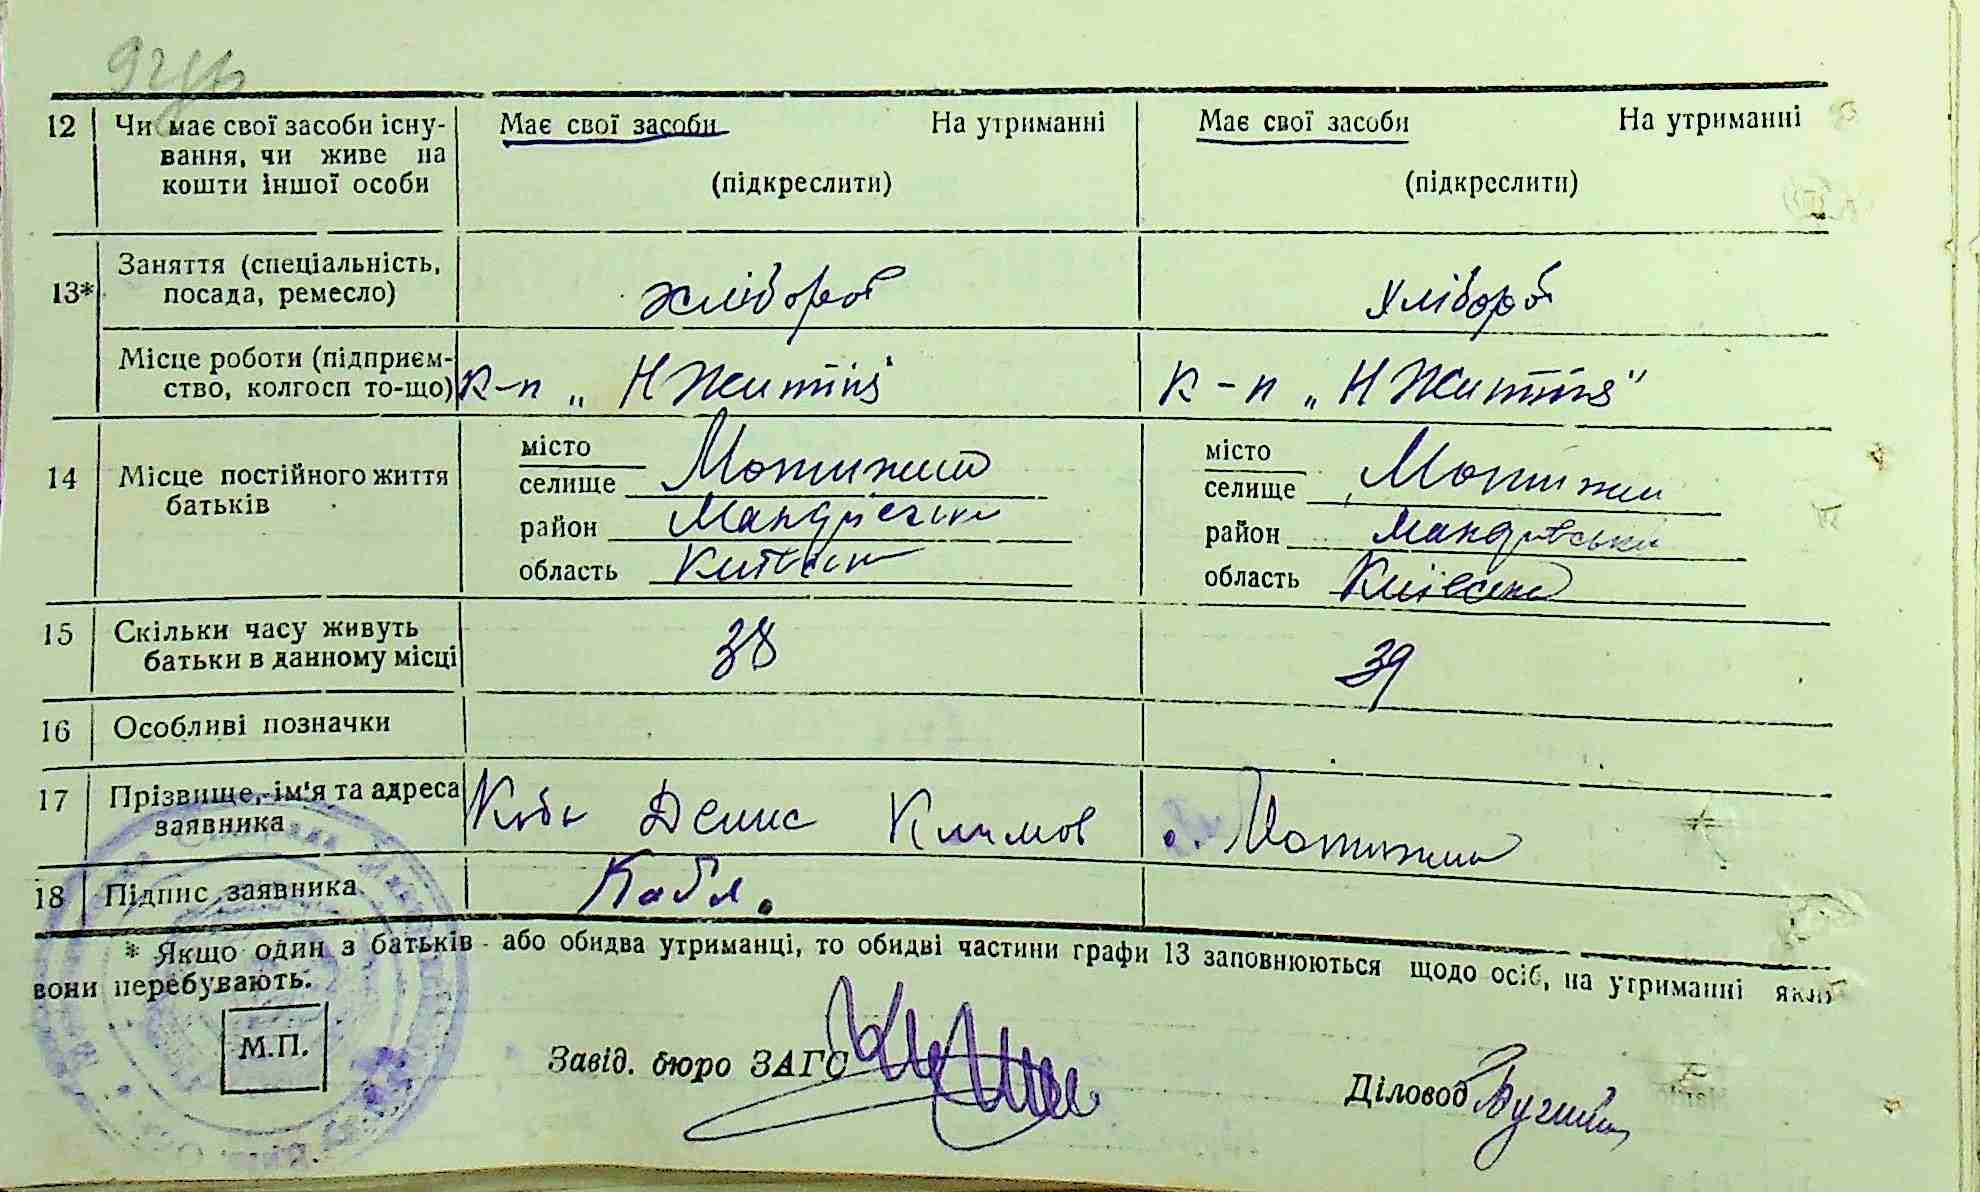 12 Чи має свої засоби існу- Має свої засоби На утриманні Має свої засоби На утриманні
вання, чи живе на
кошти іншої особи (підкреслити) (підкреслити)
13* Заняття (спеціальність,
посада, ремесло) хлібороб хлібороб
Місце роботи (підприєм-
ство, колгосп то-що) к-п „Н Життя" к-п „Н Життя"
14 Місце постійного життя
батьків
місто місто
селище Мотижин селище Мотижин
район район
область область
15 Скільки часу живуть
батьки в данному місці 38 39
16 Особливі позначки
17 Прізвище, ім'я та адреса
заявника Денис Климов с. Мотижин
18 Підпис заявника
* Якщо один з батьків або обидва утриманці, то обидві частини графи 13 заповнюються щодо осіб, на утриманні яких
вони перебувають.
М.П.
Завід. бюро ЗАГС
Діловод